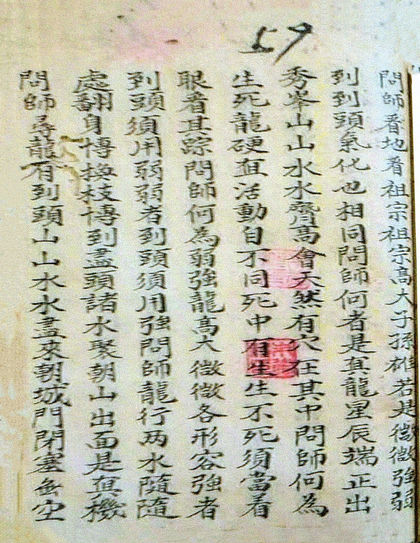 59
問師看地看祖宗祖宗高大子孫雄若是微微強弱
到到頭氣化也相同問師何者是真龍星辰端正出
秀峯山山水水齊高會天然有穴在其中問師何為
生死龍硬直活動自不同死中有生生不死須當着
眼看其踪問師何為弱強龍高大微微各形容強者
到頭須用弱弱者到頭須用強問師龍行两水隨隨
處翻身博換枝博到盡頭諸水聚朝山出面是真機
問師尋龍有到頭山山水水盡來朝城門閉塞無空